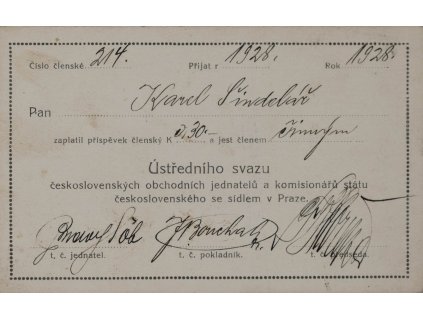 Číslo členské 214. Přijat r 1928. Rok 1928.
Pan Karel Šindelář
zaplatil příspěvek členský K 30.– a jest členem činným
Ústředního svazu
československých obchodních jednatelů a komisionářů státu
československého se sídlem v Praze.
t. č. jednatel. t. č. pokladník. t. č. předseda.